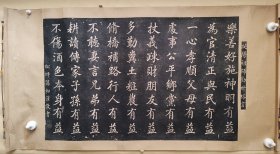 樂善好施神明有益
為官清正與民有益
一心孝順父母有益
處事公平鄉黨有益
扶義疎財朋友有益
多勤糞土農有益
修橋補路行人有益
不聽妻言兄弟有益
耕讀傳家子孫有益
不傷酒色本身有益